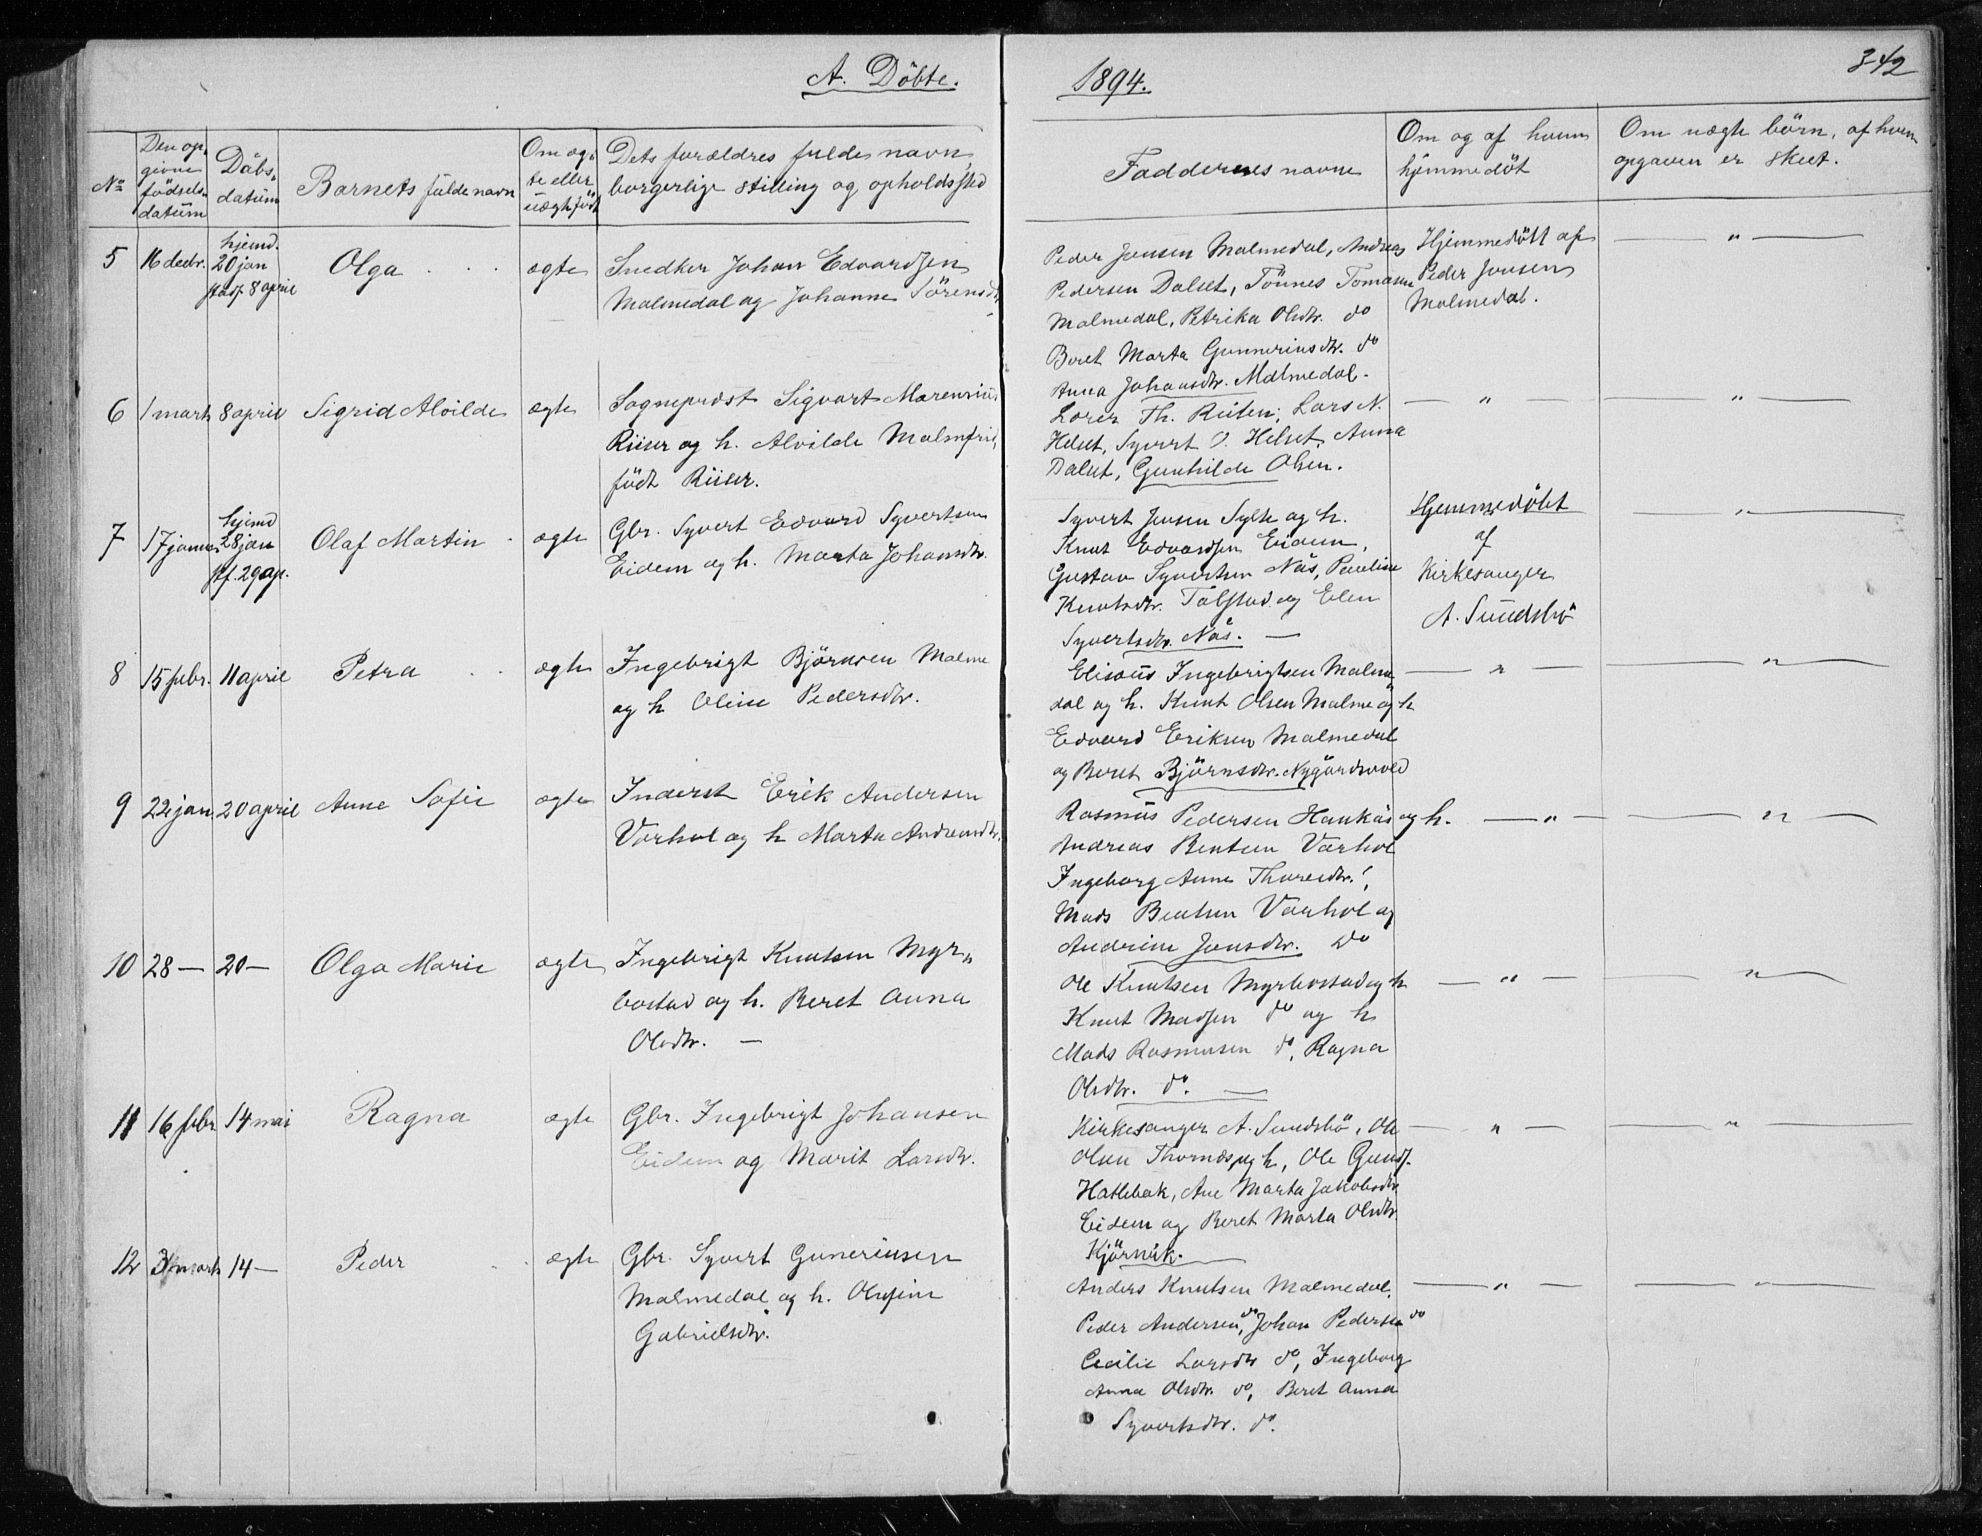 A. Döbte.
1894.
342
No
Den op-
givne
födsels-
datum
Däbs-
datum
Barnets fulde navn
Om æg-
te eller
uægte född
Dets forældres fulde navn,
borgerlige stilling og opholdssted
Faddernes navne
Om og af hvem
hjemmedöt
Om uægte börn, af hvem
opgaven er skeet.
5
16 decbr.
hjemd.
20 jan
stadf. 8 april
Olga
ægte
Snedker Johan Edvardsen
Malmedal og Johanne Sörensdtr.
Peder Jensen Malmedal, Andreas
Pedersen Dalset, Tönnes Tomassen
Malmedal, Petrika Olsdtr. do
Beret Marta Gunnerinsdtr. do
Anna Johansdtr. Malmedal.
Hjemmedöbt af
Peder Jonsen
Malmedal.
— " —
6
1 marts
8 april
Sigrid Alvilde
ægte
Sogneprest Sigvart Marensius
Riiser og h. Alvilde Malmfrid,
födt Riiser.
Loren Th. Riiten, Lars N.
Helset, Syvert O. Helset, Anna
Dalset, Gunhilde Olsen.
— " —
— " —
7
17 januar
hjemd
28 jan
stf. 29 ap.
Olaf Martin
ægte
Gbr. Syvert Edvard Syvertsen
Eidem og h. Marta Johansdtr.
Syvert Jensen Sylte og h.
Knut Edvardsen Eidem,
Gustav Syvertsen Näs, Pauline
Knutsdtr. Tolstad og Elen
Syvertsdtr. Näs. —
Hjemmedöbt
af
Kirkesanger
A. Sundsbö
— " —
8
15 febr.
11 april
Petra
ægte
Ingebrigt Björnsen Malme
og h Oline Pedersdtr.
Elisæus Ingebrigtsen Malme
dal og h. Knut Olsen Malme og h
Edvard Eriksen Malmedal
og Beret Björnsdtr. Nygårdsvold
— " —
— " —
9
22 jan.
20 april
Anne Sofie
ægte
Inderst Erik Andersen
Varhol og h Marta Andreasdtr.
Rasmus Pedersen Haukås og h.
Andreas Bentsen Varhol
Ingeborg Anne Thoresdtr.
Mads Bentsen Varhol og
Andrine Jensdtr. do
— " —
— " —
10
28 —
20 —
Olga Marie
ægte
Ingebrigt Knutsen Myr„
bostad og h. Beret Anna
Olsdtr. —
Ole Knutsen Myrbostad og h
Knut Madsen do og h
Mads Rasmusen do, Ragna
Olsdtr. do. —
— " —
— " —
11
16 febr
14 mai
Ragna
ægte
Gbr. Ingebrigt Johansen
Eidem og Marit Larsdtr.
Kirkesanger A. Sundsbö, Ole
Olsen Thornæs og h, Ole Gunds.
Hatlebak, Ane Marta Jakobsdtr
Eidem og Beret Marta Olsdtr.
Kjörsvik.
— " —
— " —
12
3 marts
14 —
Peder
ægte
Gbr. Syvert Gunerinsen
Malmedal og h. Olufine
Gabrielsdtr.
Anders Knutsen Malmedal,
Peder Andersen do, Johan Pedersen do
Cecilie Larsdtr do, Ingeborg
Anna Olsdtr. do, Beret Anna
Syvertsdtr. do.
— " —
— " —